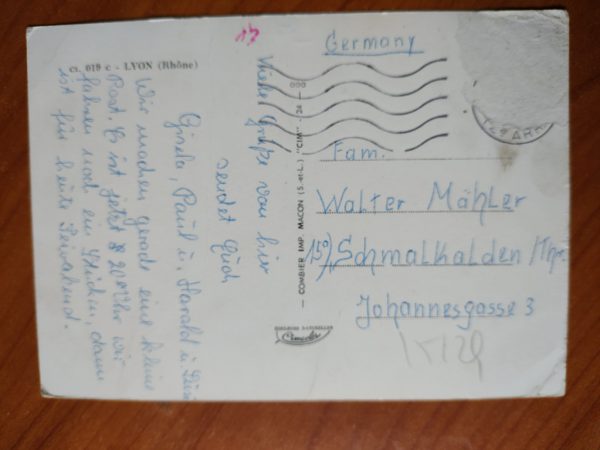 ct. 619 c - LYON (Rhône)
Viele Grüße von hier
sendet Euch
Gisela, Paul u. Harald u.
Wir machen gerade eine kleine
Rast. Es ist jetzt 20 Uhr wir
fahren noch ein Stückchen, dann
ist für heute Feierabend.
COMBIER IMP. MACON (S.-et-L.) "CIM"
Germany
Fam.
Walter Mähler
(15a) Schmalkalden/Thr.
Johannesgasse 3